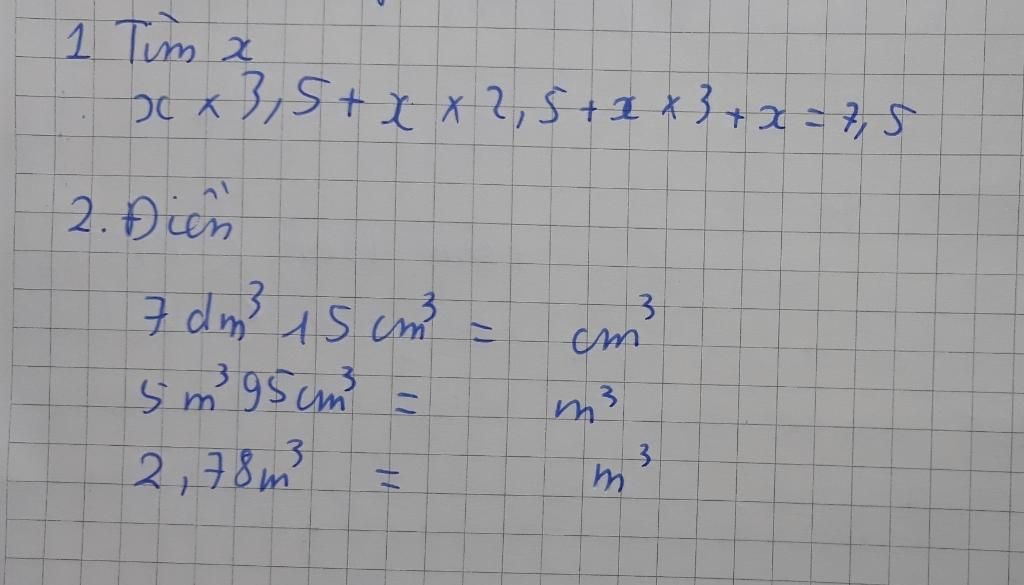 1 Tìm x
x × 3,5 + x × 2,5 + x × 3 + x = 7,5
2. Điền
7 dm³ 15 cm³ = cm³
5 m³ 95 cm³ = m³
2,78 m³ = m³